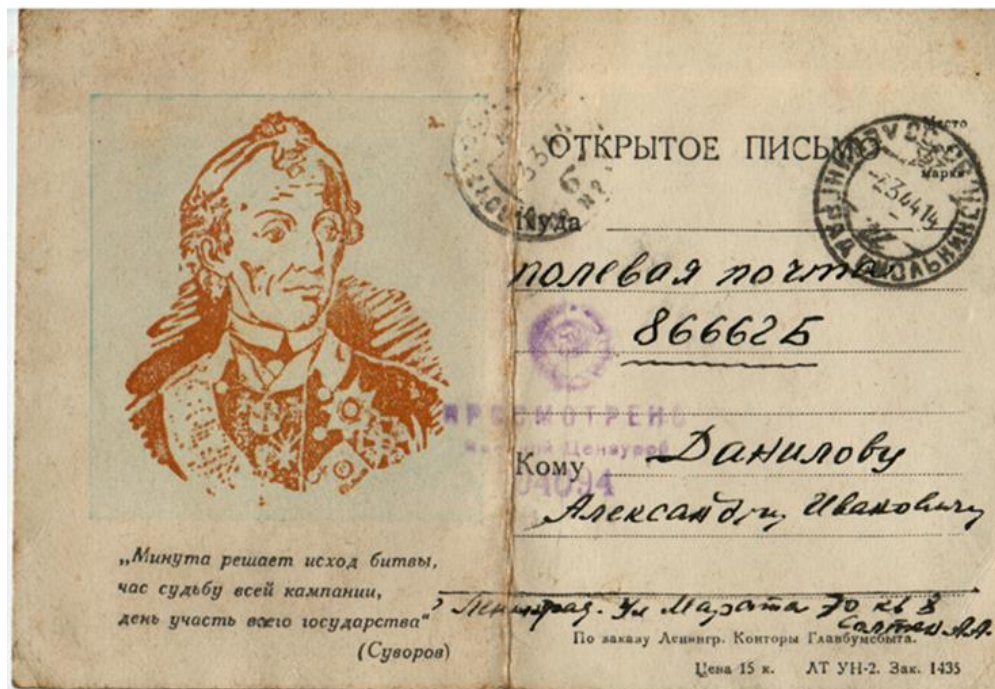 „Минута решает исход битвы,
час судьбу всей кампании,
день участь всего государства“
(Суворов)
ОТКРЫТОЕ ПИСЬМО
Место
марки
Куда
полевая почта
86662Б
ПРОСМОТРЕНО
Военной Цензурой
04094
Кому Данилову
Александру Ивановичу
Ленинград. Ул Марата 70 кв 8
По заказу Ленингр. Конторы Главбумсбыта.
Цена 15 к. ЛТ УН-2. Зак. 1435